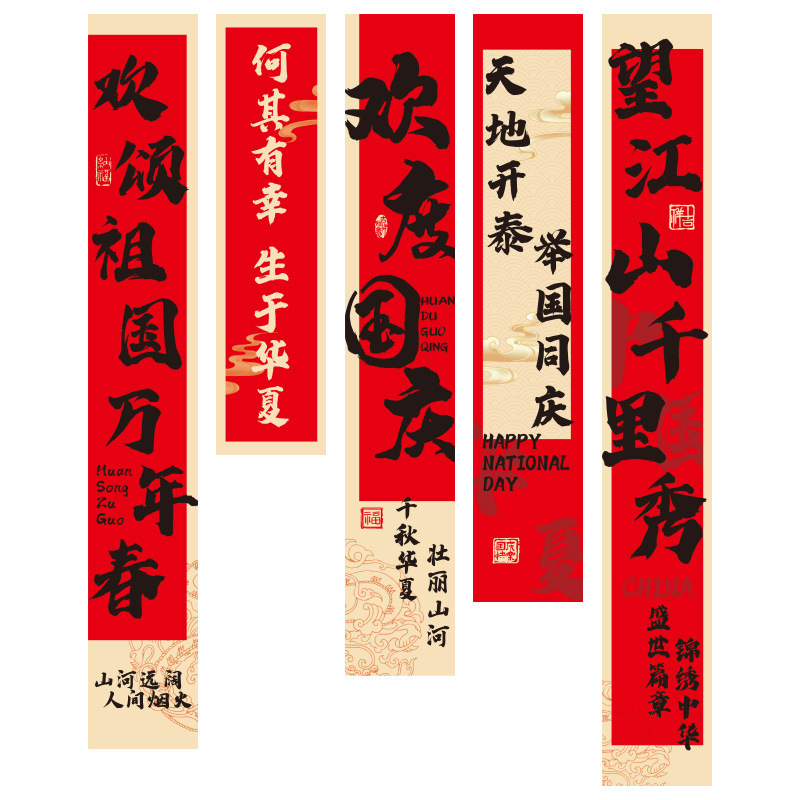 欢颂祖国万年春
纳福
Huan
Song
Zu
Guo
山河远阔
人间烟火
何其有幸 生于华夏
欢度国庆
HUAN
DU
GUO
QING
福
千秋华夏
壮丽山河
天地开泰
举国同庆
HAPPY
NATIONAL
DAY
夏
望江山千里秀
上吉祥
国
CHINA
盛世篇章
锦绣中华